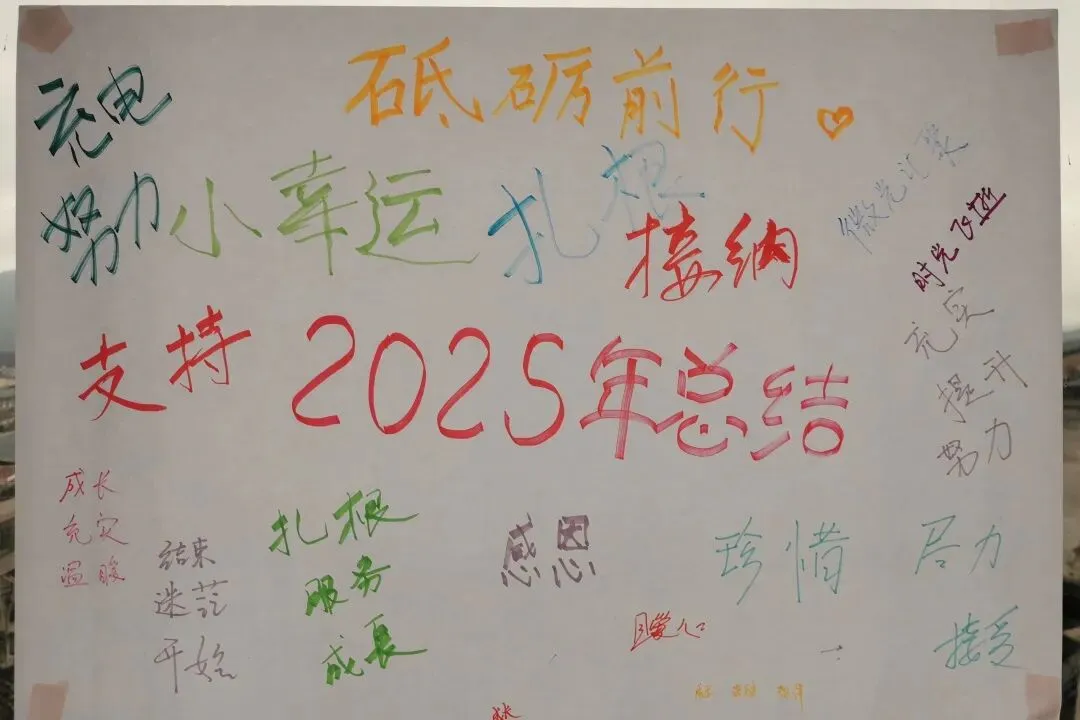 砥砺前行
充电
努力
小幸运
扎根
接纳
微光汇聚
时光飞逝
充实
提升
努力
支持
2025年总结
成长
充实
温暖
结束
迷茫
开始
扎根
服务
成長
感恩
珍惜
尽力
接受